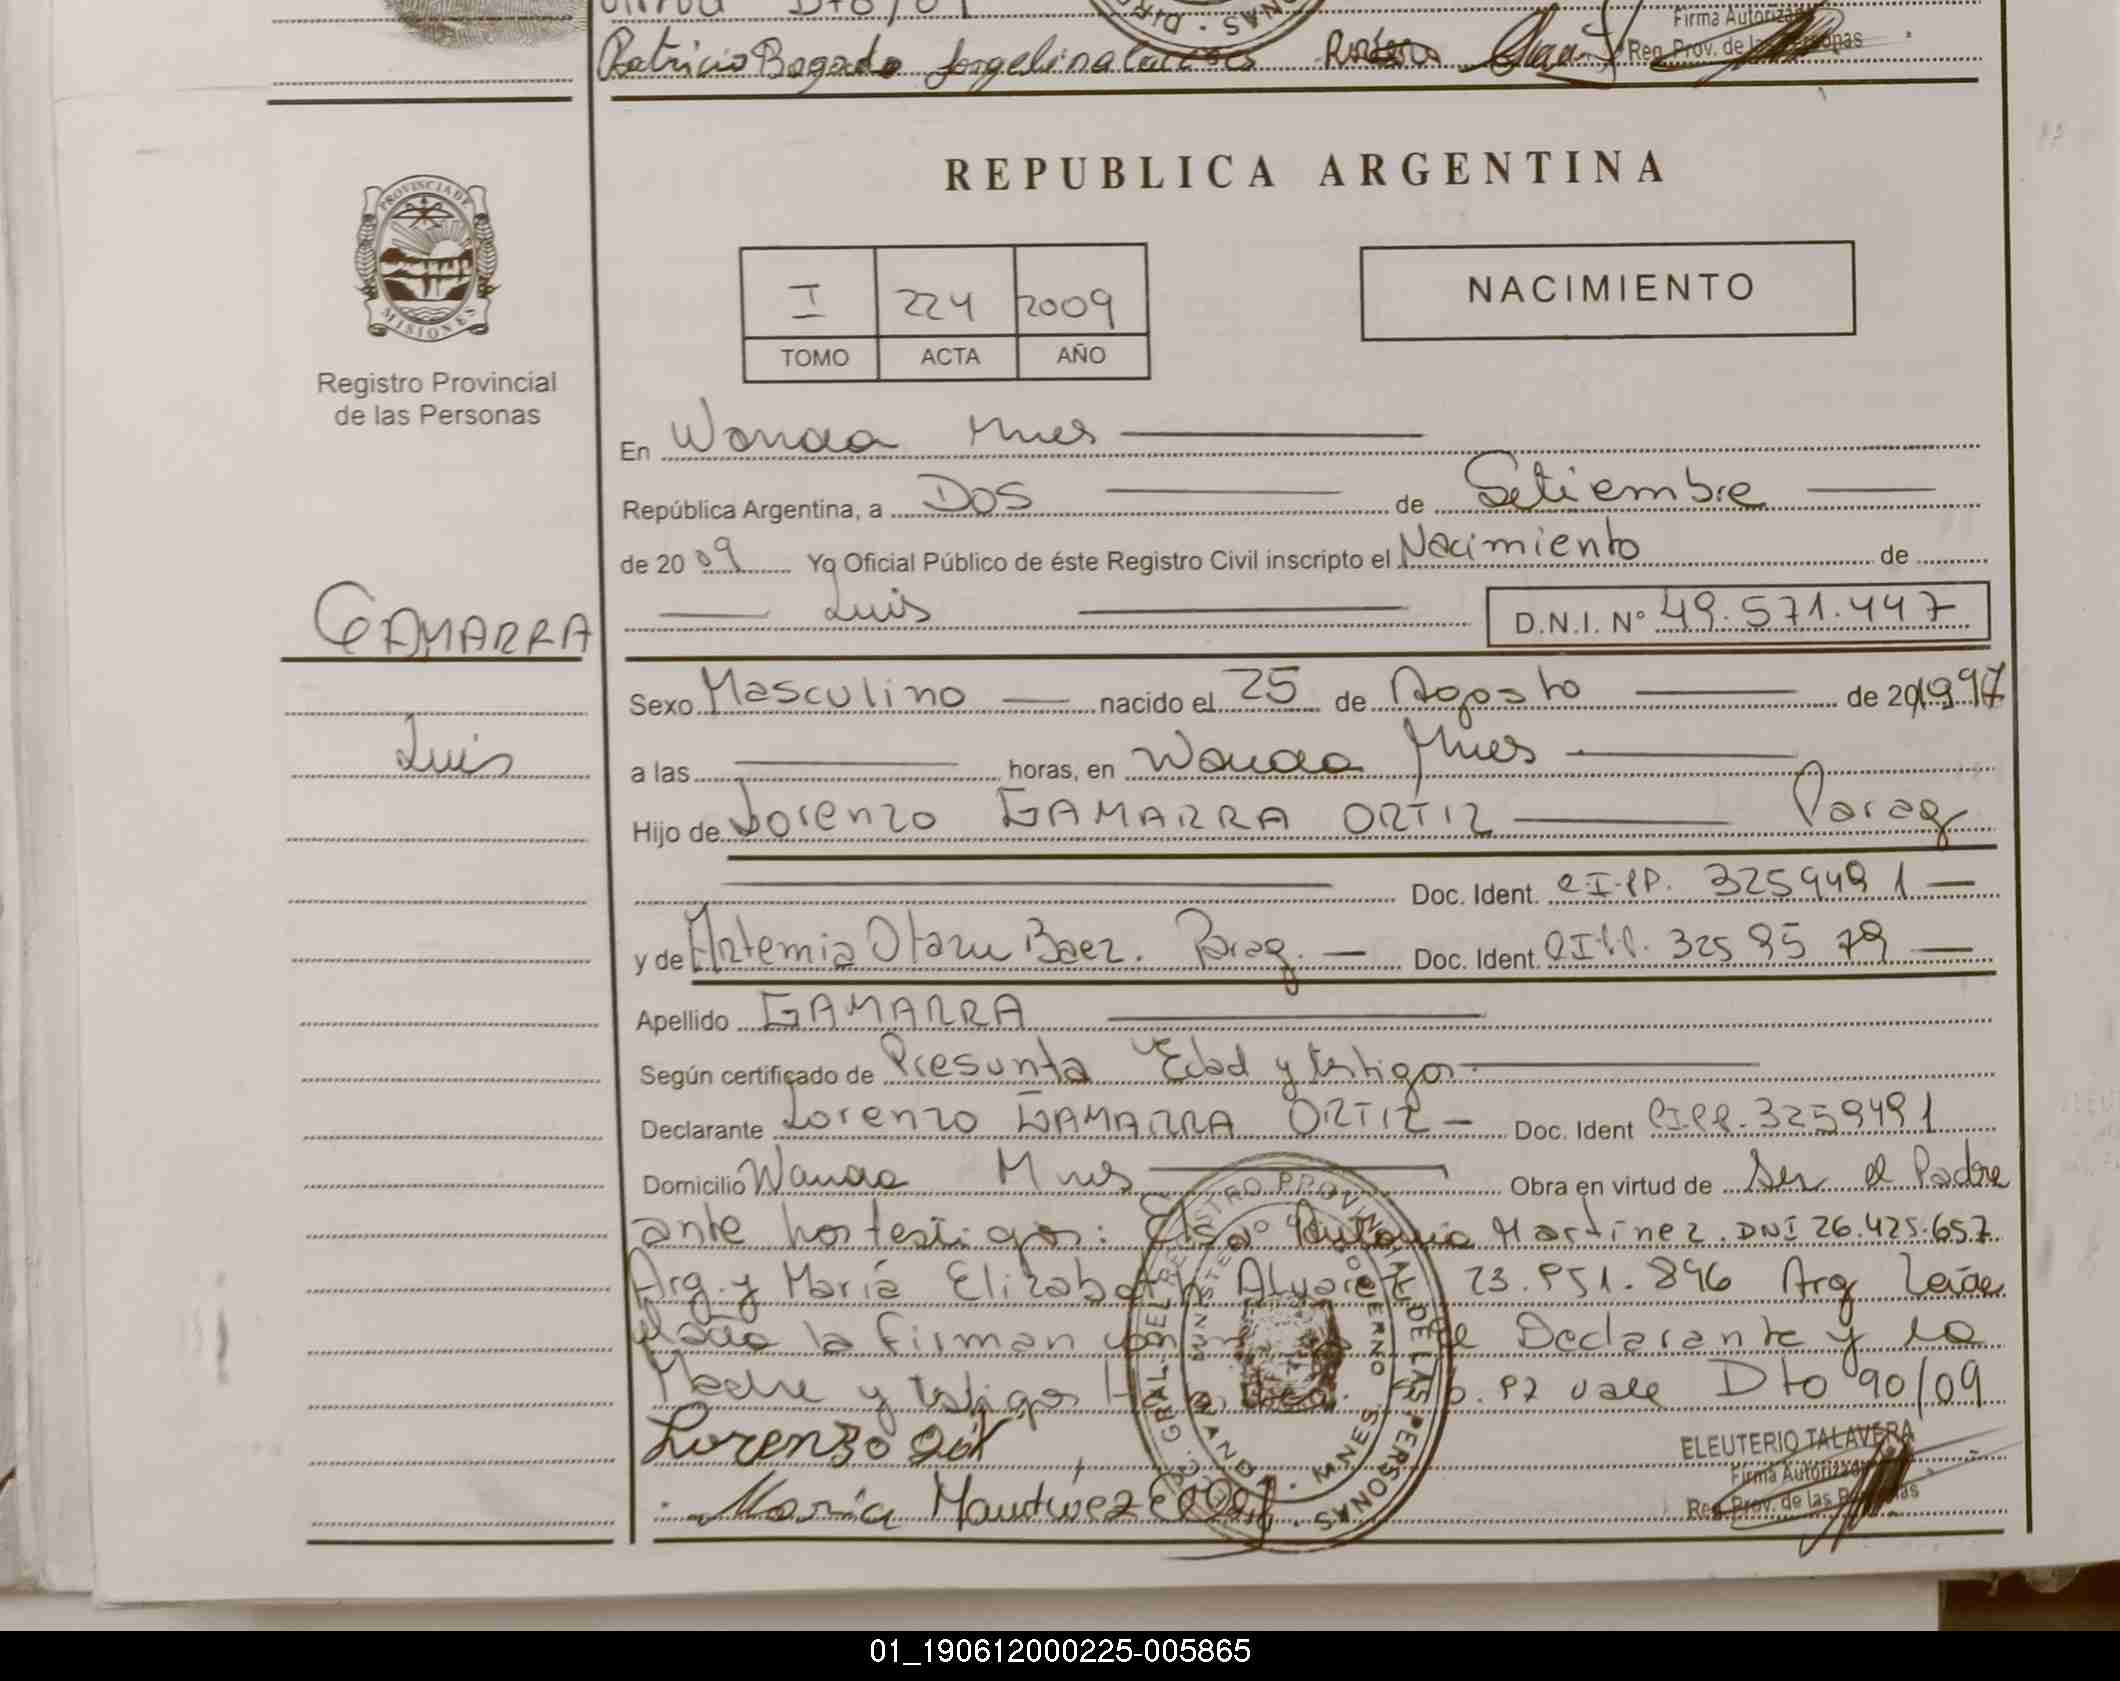 Dto/09
Patricio Bogado Jorgelina
Firma Autorizada
Reg. Prov. de las Personas
PROVINCIA DE
MISIONES
Registro Provincial
de las Personas
REPUBLICA ARGENTINA
I 224 2009
TOMO ACTA AÑO
NACIMIENTO
En Wanda Mnes
República Argentina, a Dos de Setiembre
de 2009 Yo Oficial Público de éste Registro Civil inscripto el Nacimiento de
Luis D.N.I. Nº 49.571.447
GAMARRA
Luis
Sexo Masculino nacido el 25 de Agosto de 20 1997
a las horas, en Wanda Mnes
Hijo de Lorenzo GAMARRA ORTIZ Parag
Doc. Ident. C.I.P.P. 3259491
y de Artemia Otazu Baez. Parag. Doc. Ident. C.I.P.P. 3259579
Apellido GAMARRA
Según certificado de Presunta Edad y testigos
Declarante Lorenzo GAMARRA ORTIZ Doc. Ident C.I.P.P. 3259491
Domicilio Wanda Mnes Obra en virtud de Ser el Padre
ante los testigos: Elsa Antonia Martinez. DNI 26.425.657
Arg. y María Elizabeth Alvarez 23.951.896 Arg Leída
la firman el Declarante y la
Madre y testigos vale Dto 90/09
Lorenzo
Maria
ELEUTERIO TALAVERA
Firma Autorizada
Reg. Prov. de las Personas
REGISTRO PROVINCIAL DE LAS PERSONAS
01_190612000225-005865